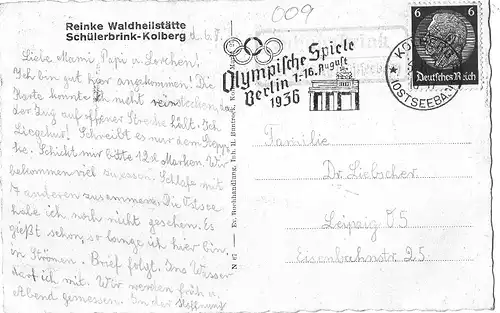 009
Reinke Waldheilstätte
Schülerbrink-Kolberg
d. 6.7.
Liebe Mami, Papi u. Lorchen!
Ich bin gut hier angekommen! Die
Karte konnte ich nicht reinstecken, da
der Zug auf offener Strecke hält. Ich
Liegekur! Schreibt es nur dem
he. Schickt mir bitte 12 Marken. Wir
bekommen viel zu essen. Schlafe mit
7 anderen zusammen. Die Ostsee
habe ich noch nicht gesehen. Es
gießt schon, so lange ich hier bin,
in Strömen. Brief folgt. Ins Wasser
darf ich mit. Wir werden früh u.
Abend gemessen. In der Hoffnung
N 67 — Ev. Buchhandlung Inh. H. Huntrock, Kolberg
Olympische Spiele
Berlin 1.-16. August
1936
6 6
Deutsches Reich
KOLBERG
(OSTSEEBAD)
Familie
Dr. Liebscher
Leipzig O5
Eisenbahnstr. 25